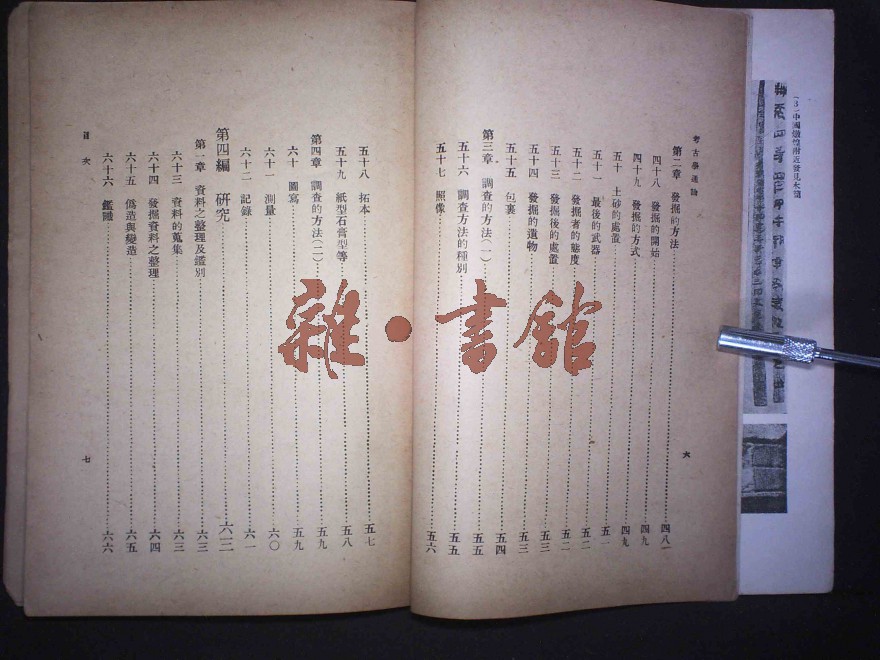 考古學通論
第二章 發掘的方法 四八
四十八 發掘的開始 四八
四十九 發掘的方式 四九
五十 土砂的處置 四九
五十一 最後的武器 五一
五十二 發掘者的態度 五二
五十三 發掘後的處置 五三
五十四 發掘的遺物 五三
五十五 包裹 五四
第三章 調查的方法(一) 五五
五十六 調查方法的種別 五五
五十七 照像 五六
六
五十八 拓本 五七
五十九 紙型石膏型等 五八
第四章 調查的方法(二) 五九
六十 圖寫 五九
六十一 測量 六〇
六十二 記錄 六一
第四編 研究 六三
第一章 資料之整理及鑑別 六三
六十三 資料的蒐集 六三
六十四 發掘資料之整理 六四
六十五 僞造與變造 六五
六十六 鑑識 六六
目次
七
雜·書館